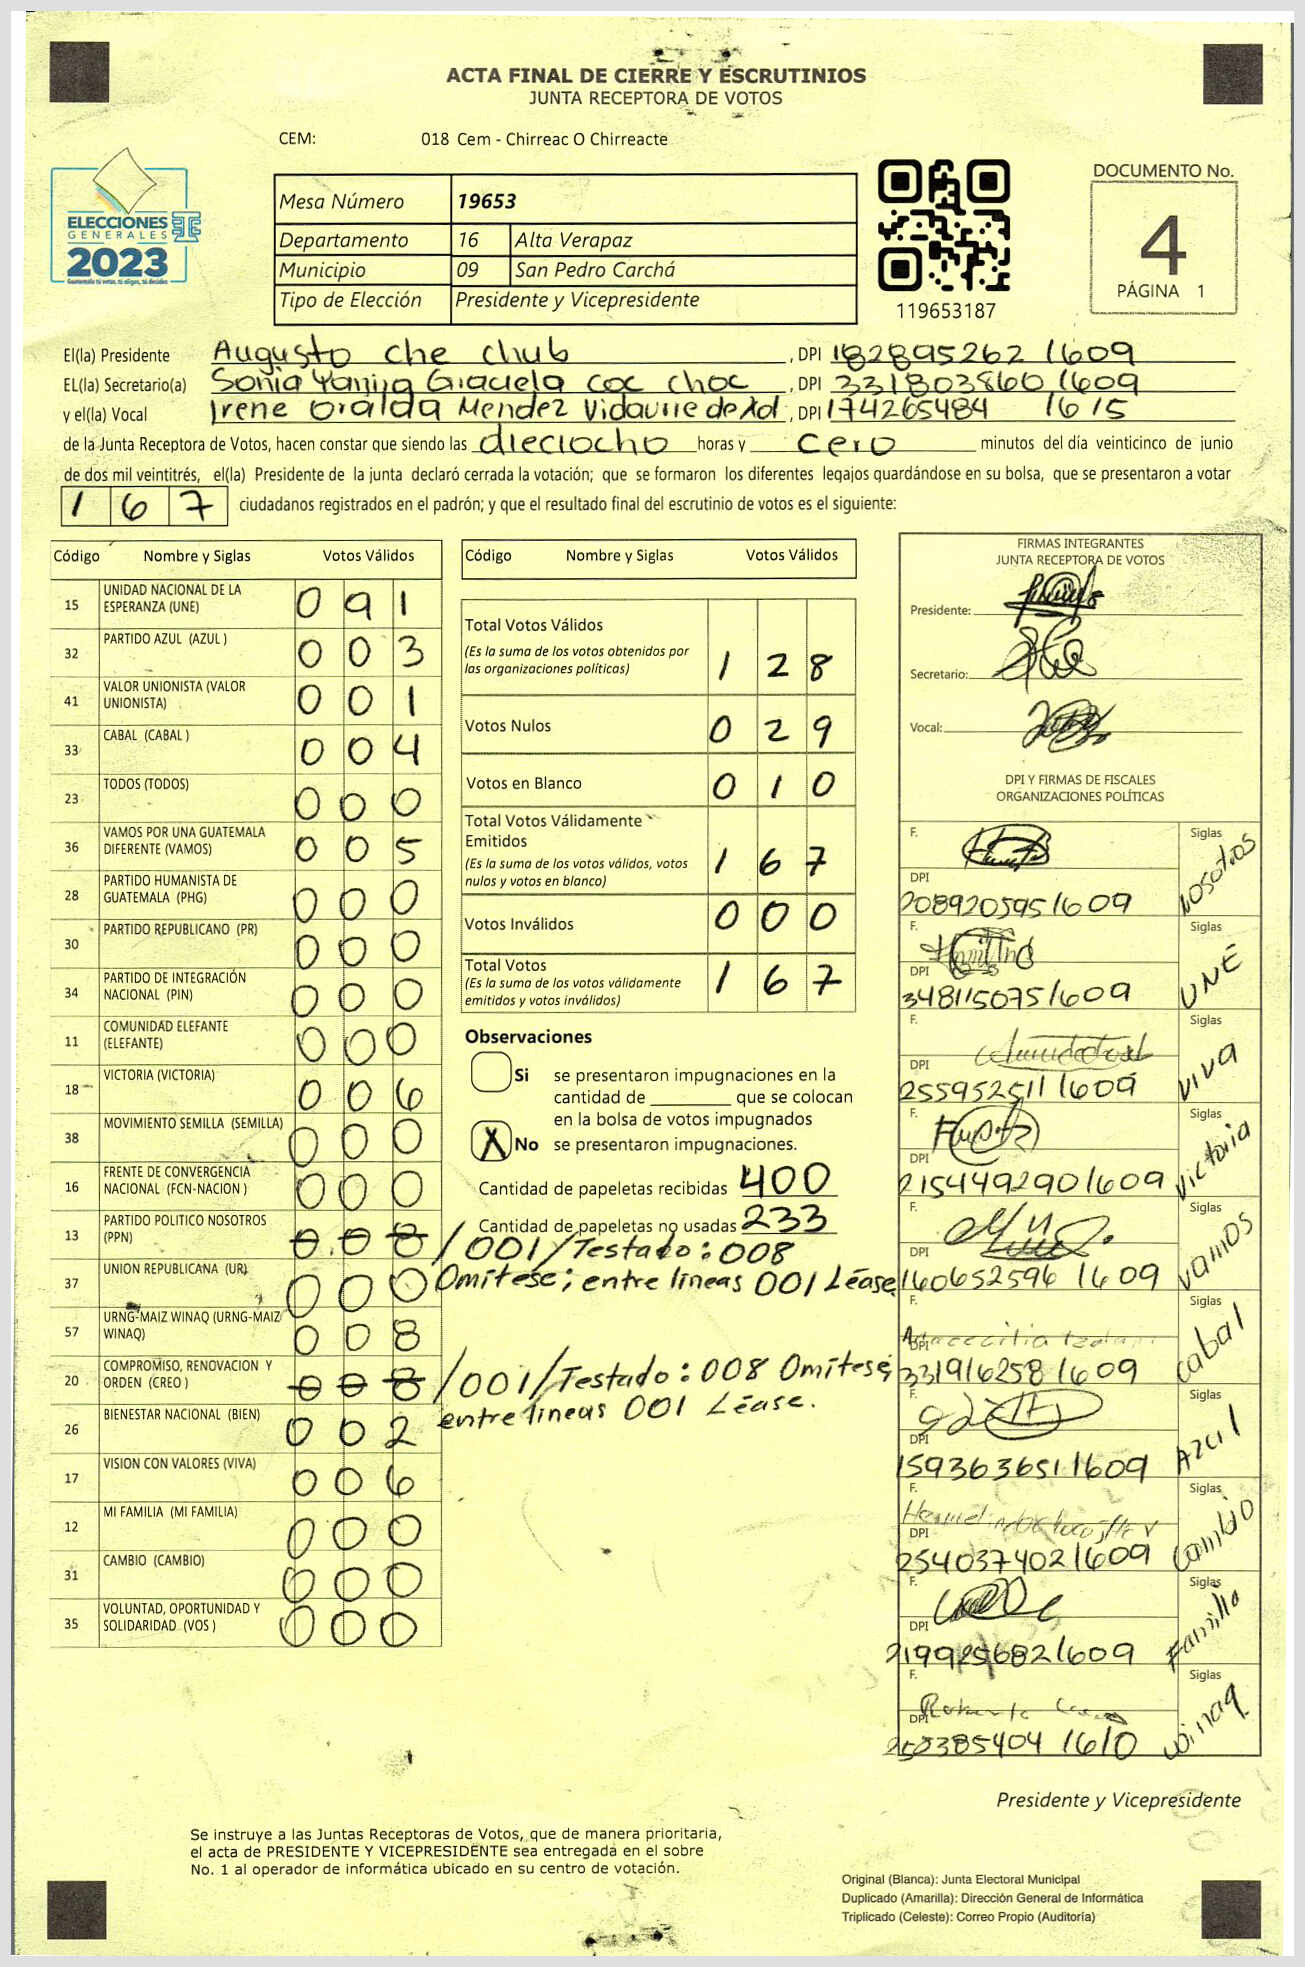 ACTA FINAL DE CIERRE Y ESCRUTINIOS
JUNTA RECEPTORA DE VOTOS
CEM: 018 Cem - Chirreac O Chirreacte
ELECCIONES
GENERALES
2023
Mesa Número 19653
Departamento 16 Alta Verapaz
Municipio 09 San Pedro Carchá
Tipo de Elección Presidente y Vicepresidente
119653187
DOCUMENTO No.
4
PÁGINA 1
El(la) Presidente Augusto che chub , DPI 182895262 1609
EL(la) Secretario(a) Sonia Yanira Graciela coc choc , DPI 331803860 1609
y el(la) Vocal Irene Oralda Mendez Vidaurre de Xol , DPI 174265484 1615
de la Junta Receptora de Votos, hacen constar que siendo las dieciocho horas y cero minutos del día veinticinco de junio
de dos mil veintitrés, el(la) Presidente de la junta declaró cerrada la votación; que se formaron los diferentes legajos guardándose en su bolsa, que se presentaron a votar
167 ciudadanos registrados en el padrón; y que el resultado final del escrutinio de votos es el siguiente:
Código Nombre y Siglas Votos Válidos
15 UNIDAD NACIONAL DE LA ESPERANZA (UNE) 091
32 PARTIDO AZUL (AZUL ) 003
41 VALOR UNIONISTA (VALOR UNIONISTA) 001
33 CABAL (CABAL ) 004
23 TODOS (TODOS) 000
36 VAMOS POR UNA GUATEMALA DIFERENTE (VAMOS) 005
28 PARTIDO HUMANISTA DE GUATEMALA (PHG) 000
30 PARTIDO REPUBLICANO (PR) 000
34 PARTIDO DE INTEGRACIÓN NACIONAL (PIN) 000
11 COMUNIDAD ELEFANTE (ELEFANTE) 000
18 VICTORIA (VICTORIA) 006
38 MOVIMIENTO SEMILLA (SEMILLA) 000
16 FRENTE DE CONVERGENCIA NACIONAL (FCN-NACION ) 000
13 PARTIDO POLITICO NOSOTROS (PPN) 008 /001/Testado: 008
Omítese; entre lineas 001 Léase
37 UNION REPUBLICANA (UR) 000
57 URNG-MAIZ WINAQ (URNG-MAIZ WINAQ) 008
20 COMPROMISO, RENOVACION Y ORDEN (CREO ) 008 /001/Testado: 008 Omítese;
entre lineas 001 Léase.
26 BIENESTAR NACIONAL (BIEN) 002
17 VISION CON VALORES (VIVA) 006
12 MI FAMILIA (MI FAMILIA) 000
31 CAMBIO (CAMBIO) 000
35 VOLUNTAD, OPORTUNIDAD Y SOLIDARIDAD (VOS ) 000
Código Nombre y Siglas Votos Válidos
Total Votos Válidos 128
(Es la suma de los votos obtenidos por
las organizaciones políticas)
Votos Nulos 029
Votos en Blanco 010
Total Votos Válidamente
Emitidos 167
(Es la suma de los votos válidos, votos
nulos y votos en blanco)
Votos Inválidos 000
Total Votos 167
(Es la suma de los votos válidamente
emitidos y votos inválidos)
Observaciones
Si se presentaron impugnaciones en la
cantidad de ________ que se colocan
en la bolsa de votos impugnados
X No se presentaron impugnaciones.
Cantidad de papeletas recibidas 400
Cantidad de papeletas no usadas 233
FIRMAS INTEGRANTES
JUNTA RECEPTORA DE VOTOS
Presidente:
Secretario:
Vocal:
DPI Y FIRMAS DE FISCALES
ORGANIZACIONES POLÍTICAS
F. Siglas Nosotros
DPI 208920595 1609
F. Siglas UNE
DPI 348115075 1609
F. Siglas VIVA
DPI 255952511 1609
F. Siglas Victoria
DPI 215449290 1609
F. Siglas Vamos
DPI 160652596 1609
F. Siglas Cabal
DPI 331916258 1609
F. Siglas Azul
DPI 159363651 1609
F. Siglas Cambio
DPI 254037402 1609
F. Siglas Familia
DPI 219925682 1609
F. Siglas Winaq
DPI 1610
Presidente y Vicepresidente
Se instruye a las Juntas Receptoras de Votos, que de manera prioritaria,
el acta de PRESIDENTE Y VICEPRESIDENTE sea entregada en el sobre
No. 1 al operador de informática ubicado en su centro de votación.
Original (Blanca): Junta Electoral Municipal
Duplicado (Amarilla): Dirección General de Informática
Triplicado (Celeste): Correo Propio (Auditoría)